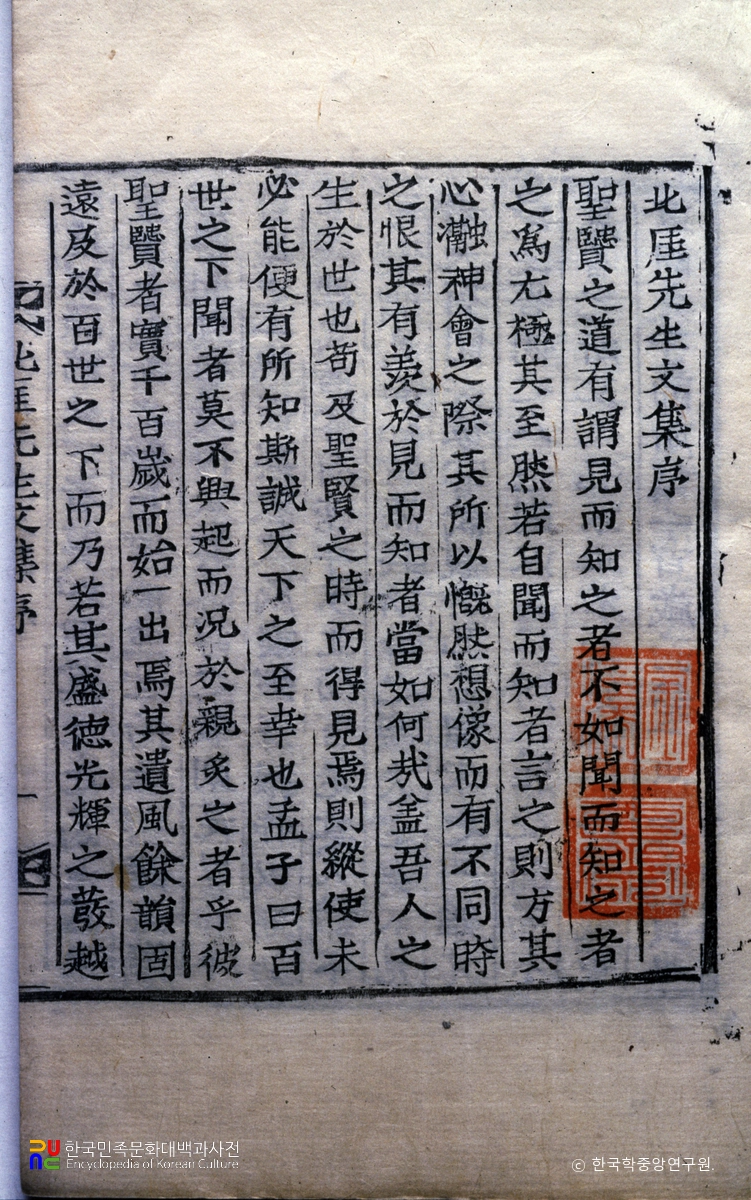 北厓先生文集序
聖贒之道有謂見而知之者不如聞而知之者
之爲尤極其至然若自聞而知者言之則方其
心瀜神會之際其所以慨然想像而有不同時
之恨其有羨於見而知者當如何㦲盖吾人之
生於世也苟及聖賢之時而得見焉則縱使未
必能便有所知斯誠天下之至幸也孟子曰百
世之下聞者莫不興起而况於親炙之者乎彼
聖贒者實千百歲而始一出焉其遺風餘韻固
遠及於百世之下而乃若其盛德光輝之發越
北厓先生文集序
한국민족문화대백과사전
Encyclopedia of Korean Culture
© 한국학중앙연구원.